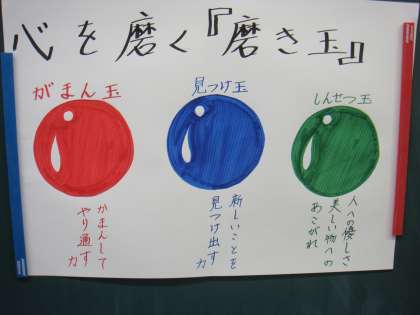 心を磨く『磨き玉』
がまん玉
がまんして
やり通す力
見つけ玉
新しいことを
見つけ出す力
しんせつ玉
人への優しさ
美しい物への
あこがれ